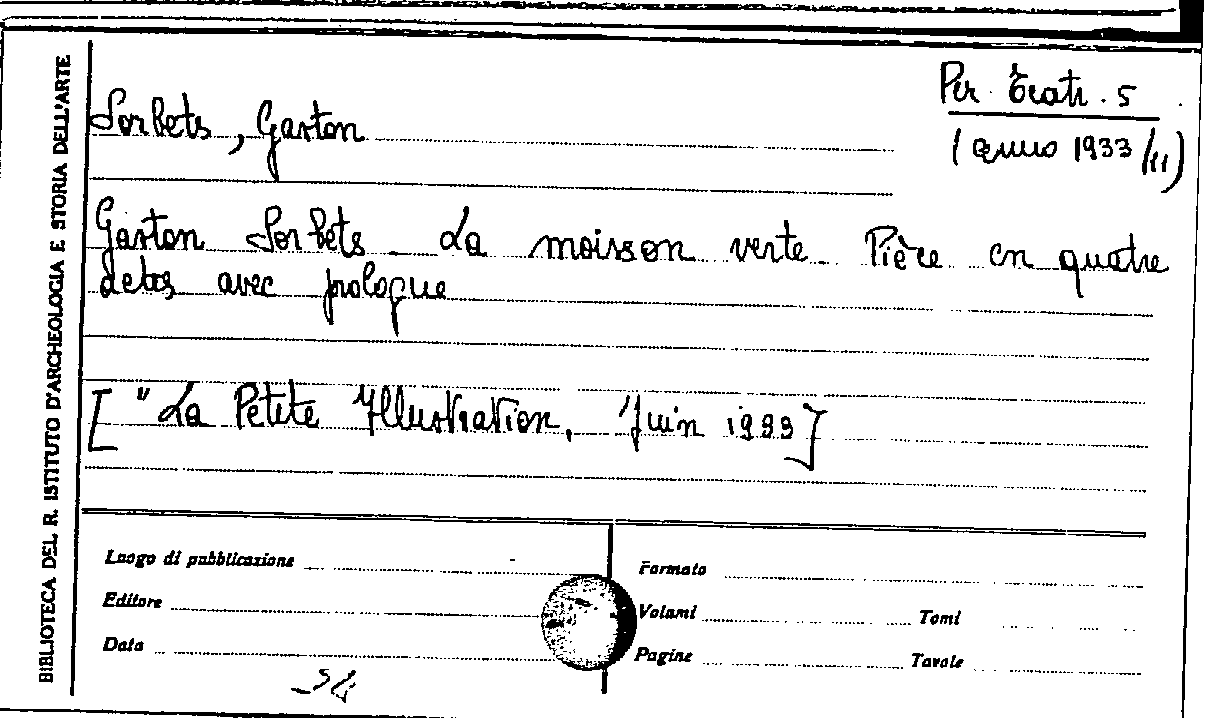 BIBLIOTECA DEL R. ISTITUTO D'ARCHEOLOGIA E STORIA DELL'ARTE
Per. teatr. 5
(anno 1933/II)
Sorbets, Gaston
Gaston Sorbets La moisson verte Pièce en quatre
actes avec prologue
["La Petite Illustration, Juin 1933]
Luogo di pubblicazione
Formato
Editore
Volumi Tomi
Data
Pagine Tavole